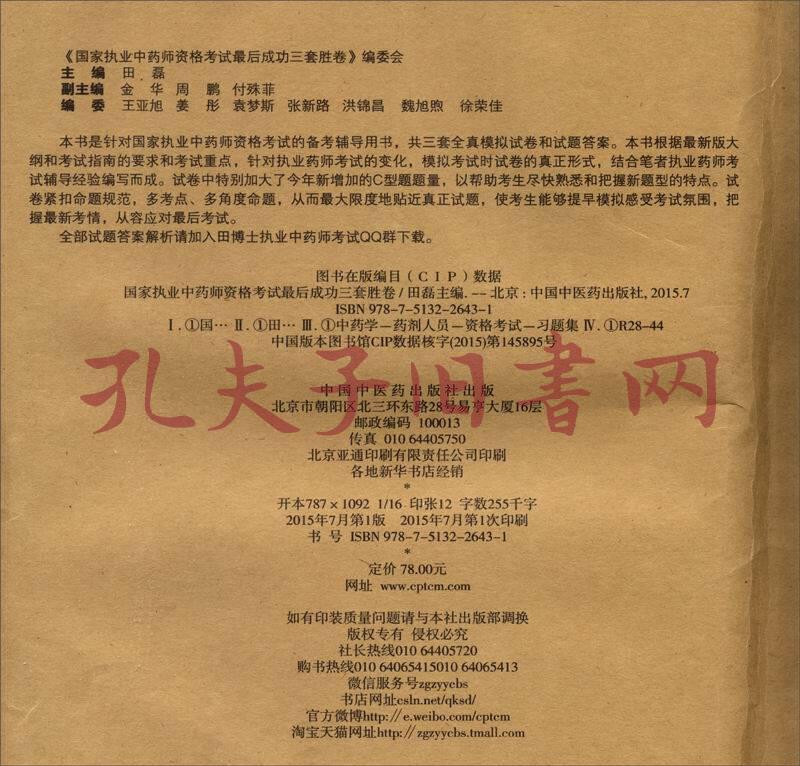 《国家执业中药师资格考试最后成功三套胜卷》编委会
主 编 田 磊
副主编 金 华 周 鹏 付殊菲
编 委 王亚旭 姜 彤 袁梦斯 张新路 洪锦昌 魏旭煦 徐荣佳
本书是针对国家执业中药师资格考试的备考辅导用书，共三套全真模拟试卷和试题答案。本书根据最新版大
纲和考试指南的要求和考试重点，针对执业药师考试的变化，模拟考试时试卷的真正形式，结合笔者执业药师考
试辅导经验编写而成。试卷中特别加大了今年新增加的C型题题量，以帮助考生尽快熟悉和把握新题型的特点。试
卷紧扣命题规范，多考点、多角度命题，从而最大限度地贴近真正试题，使考生能够提早模拟感受考试氛围，把
握最新考情，从容应对最后考试。
全部试题答案解析请加入田博士执业中药师考试QQ群下载。
图书在版编目（CIP）数据
国家执业中药师资格考试最后成功三套胜卷/田磊主编.--北京：中国中医药出版社，2015.7
ISBN 978-7-5132-2643-1
Ⅰ.①国… Ⅱ.①田… Ⅲ.①中药学－药剂人员－资格考试－习题集 Ⅳ.①R28-44
中国版本图书馆CIP数据核字(2015)第145895号
孔夫子旧書网
中国中医药出版社出版
北京市朝阳区北三环东路28号易亨大厦16层
邮政编码 100013
传真 010 64405750
北京亚通印刷有限责任公司印刷
各地新华书店经销
*
开本787×1092 1/16 印张12 字数255千字
2015年7月第1版 2015年7月第1次印刷
书 号 ISBN 978-7-5132-2643-1
*
定价 78.00元
网址 www.cptcm.com
如有印装质量问题请与本社出版部调换
版权专有 侵权必究
社长热线010 64405720
购书热线010 64065415010 64065413
微信服务号zgzyycbs
书店网址csln.net/qksd/
官方微博http://e.weibo.com/cptcm
淘宝天猫网址http://zgzyycbs.tmall.com